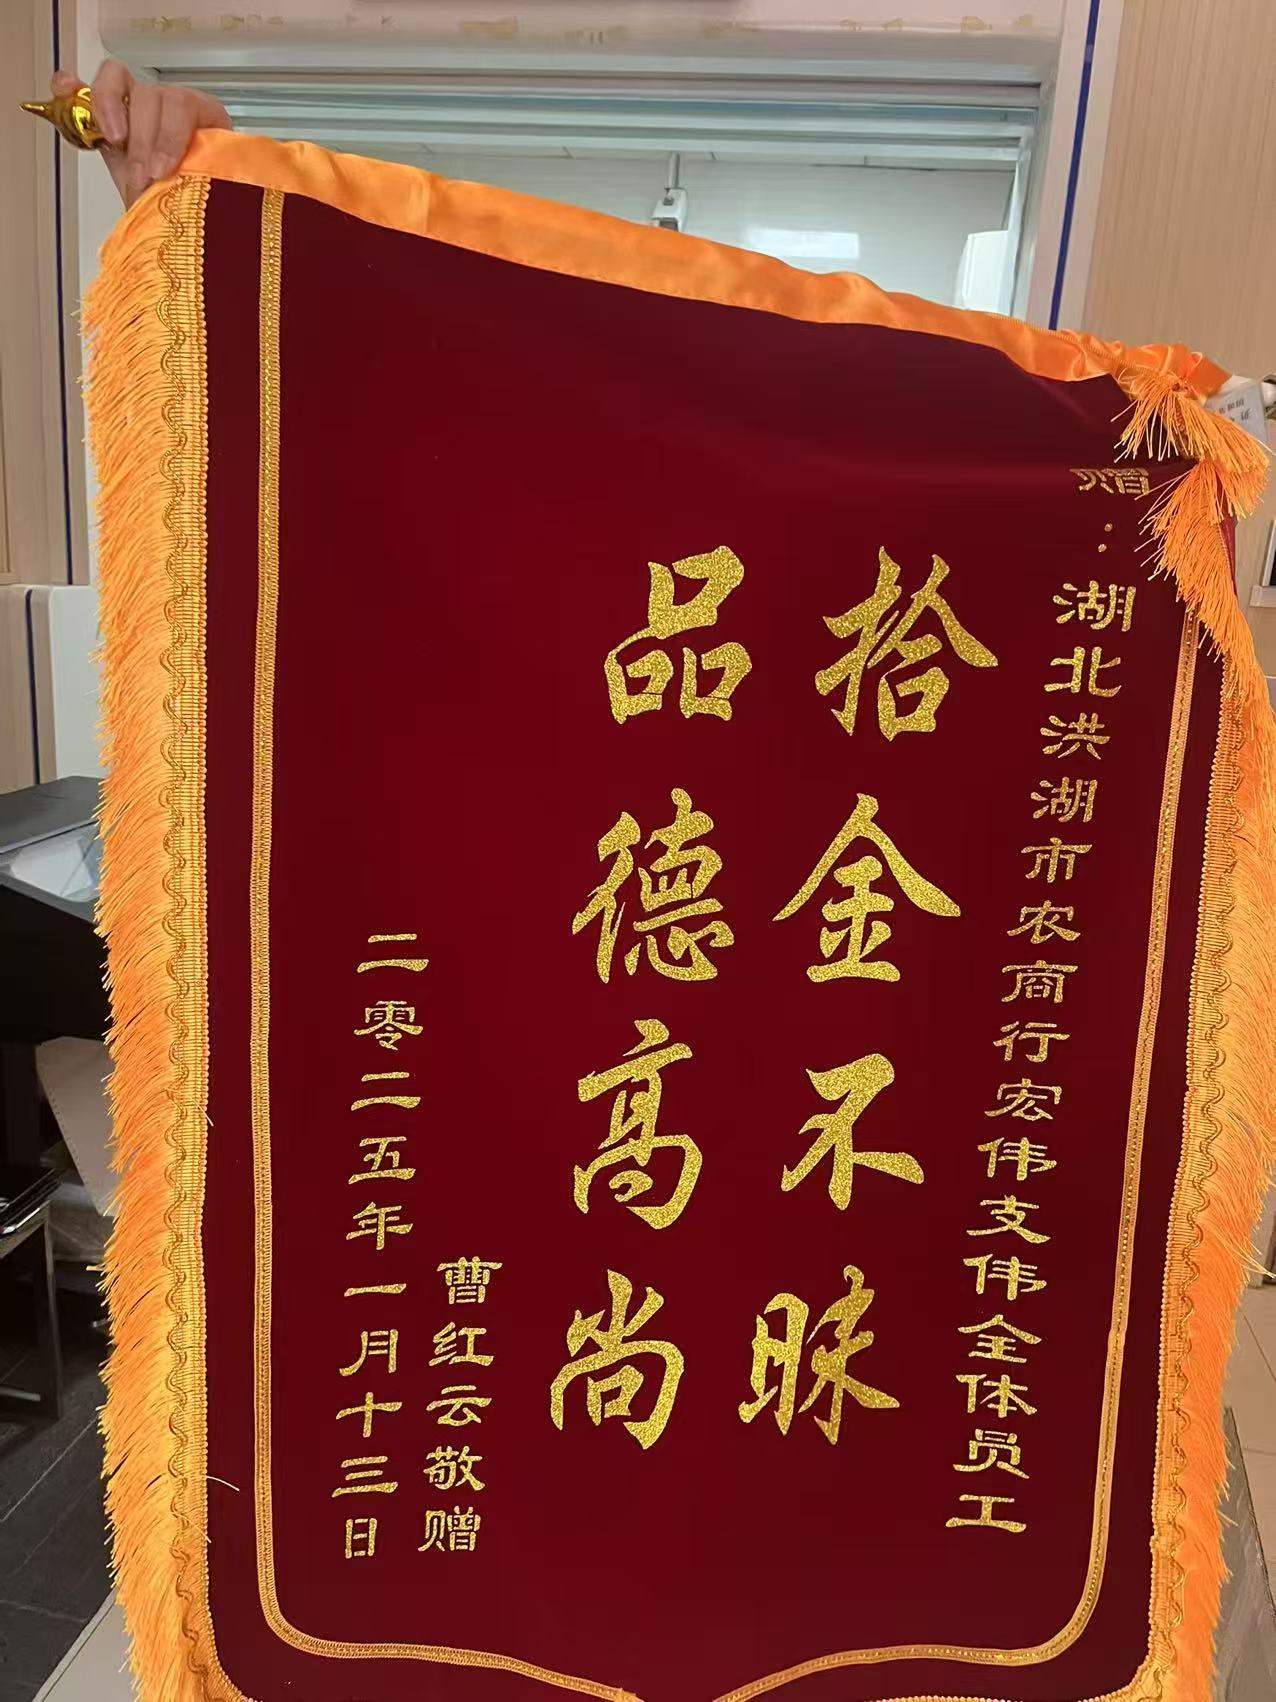 赠：湖北洪湖市农商行宏伟支伟全体员工
拾金不昧
品德高尚
曹红云敬赠
二零二五年一月十三日